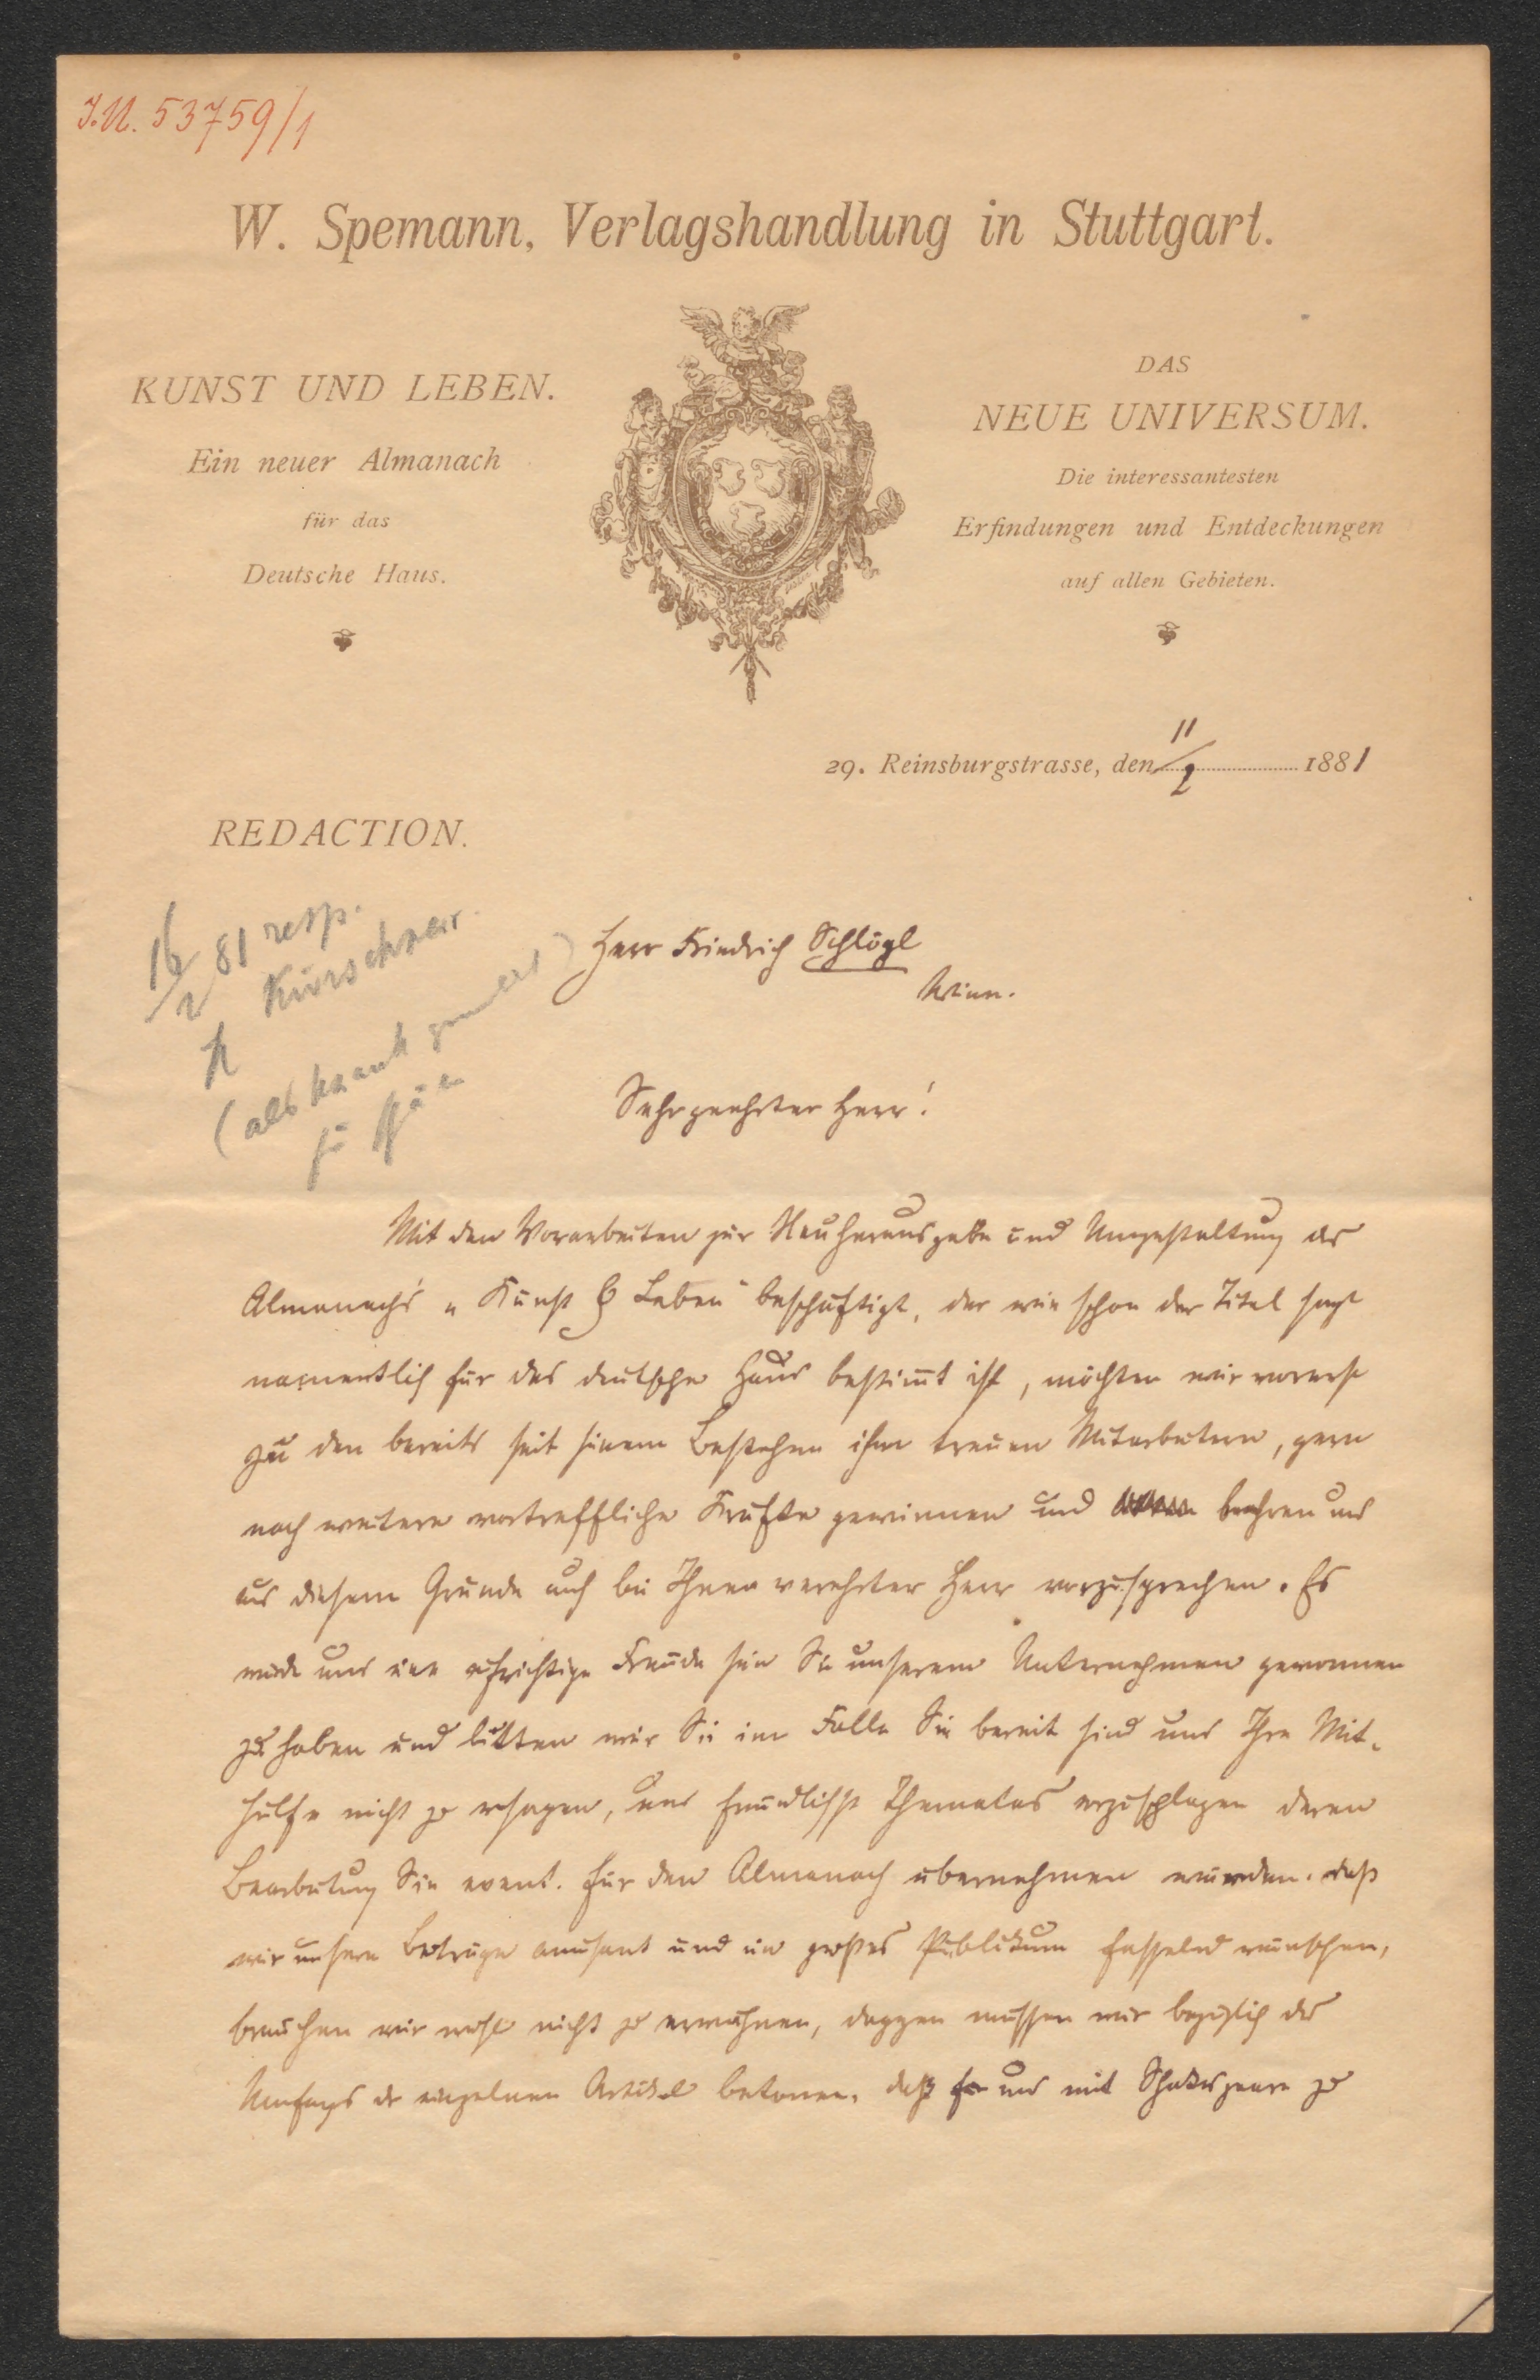 J.N. 53759/1
W. Spemann, Verlagshandlung in Stuttgart.
KUNST UND LEBEN.
Ein neuer Almanach
für das
Deutsche Haus.
DAS
NEUE UNIVERSUM.
Die interessantesten
Erfindungen und Entdeckungen
auf allen Gebieten.
29. Reinsburgstrasse, den 11/2 1881
REDACTION.
16/2 81 resp.
Kürschner
(als krank
Herr Friedrich Schlögl
Wien.
Sehr geehrter Herr!
Mit den Vorarbeiten zur Neuherausgabe und Umgestaltung des
Almanachs „Kunst & Leben" beschäftigt, der wie schon der Titel sagt
namentlich für das deutsche Haus bestimt ist, möchten wir vorerst
zu den bereits seit seinem Bestehen ihm treuen Mitarbeitern, gern
noch weitere vortreffliche Kräfte gewinnen und beehren uns
aus diesem Grunde auch bei Ihnen verehrter Herr vorzusprechen. Es
würde uns eine aufrichtige Freude sein Sie unserem Unternehmen gewonnen
zu haben und bitten wir Sie im Falle Sie bereit sind uns Ihre Mit-
hülfe nicht zu versagen, uns freundlichst Themata vorzuschlagen deren
Bearbeitung Sie event. für den Almanach übernehmen würden. Daß
wir unsere Beiträge amüsant und ein großes Publikum fesselnd wünschen,
brauchen wir wohl nicht zu erwähnen, dagegen müssen wir bezüglich des
Umfangs der einzelnen Artikel betonen, daß es uns mit Shakespeare zu